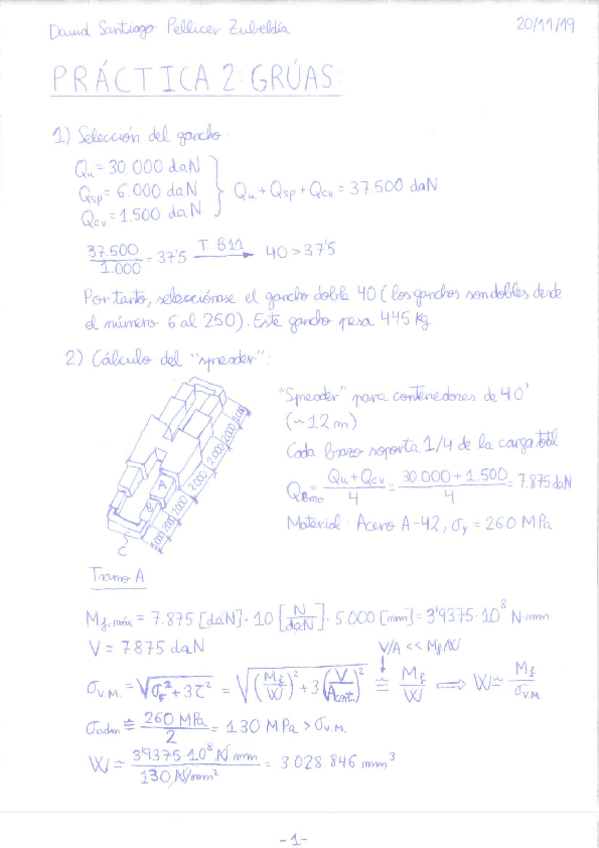 David Santiago Pellicer Zubeldía 20/11/19
PRÁCTICA 2: GRÚAS:
1) Selección del gancho:
Qu = 30.000 daN
Qsp = 6.000 daN
Qcv = 1.500 daN
Qu + Qsp + Qcv = 37.500 daN
37.500/1.000 = 37'5 T. B11 → 40 > 37'5
Por tanto, selecciónase el gancho doble 40 (los ganchos son dobles desde
el número 6 al 250). Este gancho pesa 445 kg.
2) Cálculo del "spreader":
"Spreader" para contenedores de 40'
(~12 m)
Cada brazo soporta 1/4 de la carga total
QBrazo = (Qu + Qcv)/4 = (30.000 + 1.500)/4 = 7.875 daN
Material: Acero A-42, σy = 260 MPa
2.000 2.000 2.000 2.000
C
Tramo A
Mf,máx = 7.875 [daN] · 10 [N/daN] · 5.000 [mm] = 3'9375·10⁸ N·mm
V = 7875 daN
V/A << Mf/W
σV.M. = √(σF² + 3τ²) = √((Mf/W)² + 3(V/Acort.)²) ≅ Mf/W ⟹ W ≃ Mf/σV.M.
σadm ≅ 260 MPa/2 = 130 MPa > σV.M.
W ≃ 3'9375·10⁸ N·mm / 130 N/mm² = 3 028 846 mm³
-1-